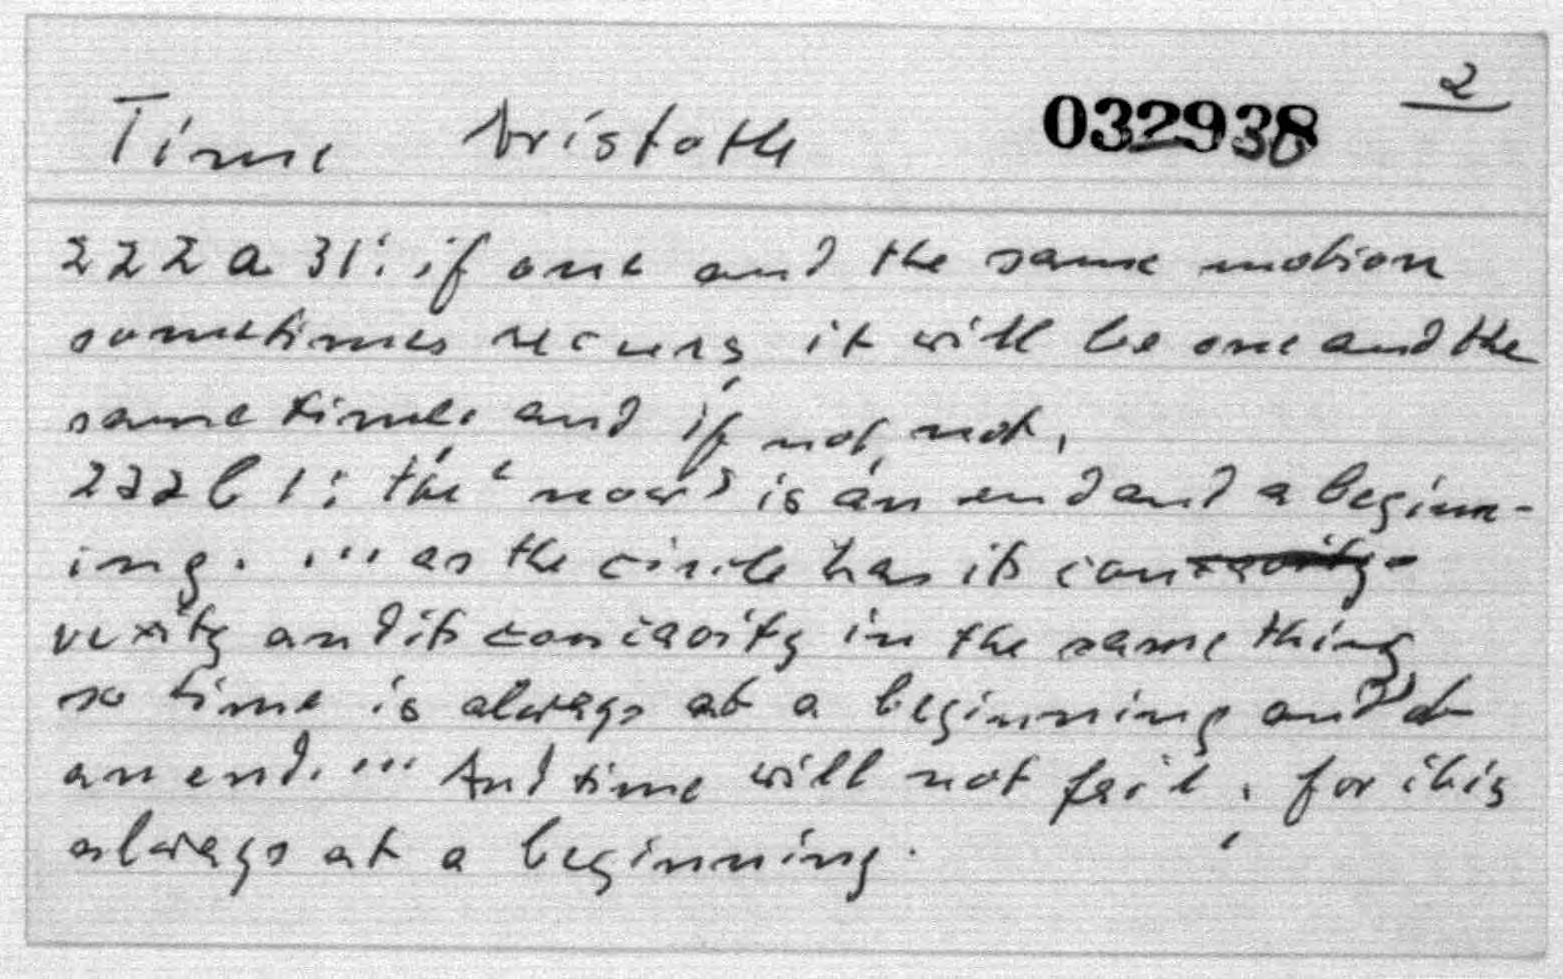 Time Aristotle 032938 2
222 a 31: if one and the same motion
sometimes recurs, it will be one and the
same time, and if not, not.
222 b 1: the 'now' is an end and a beginn-
ing. ... as the circle has its con-
vexity and its concavity in the same thing
so time is always at a beginning and at
an end. ... And time will not fail; for it is
always at a beginning.